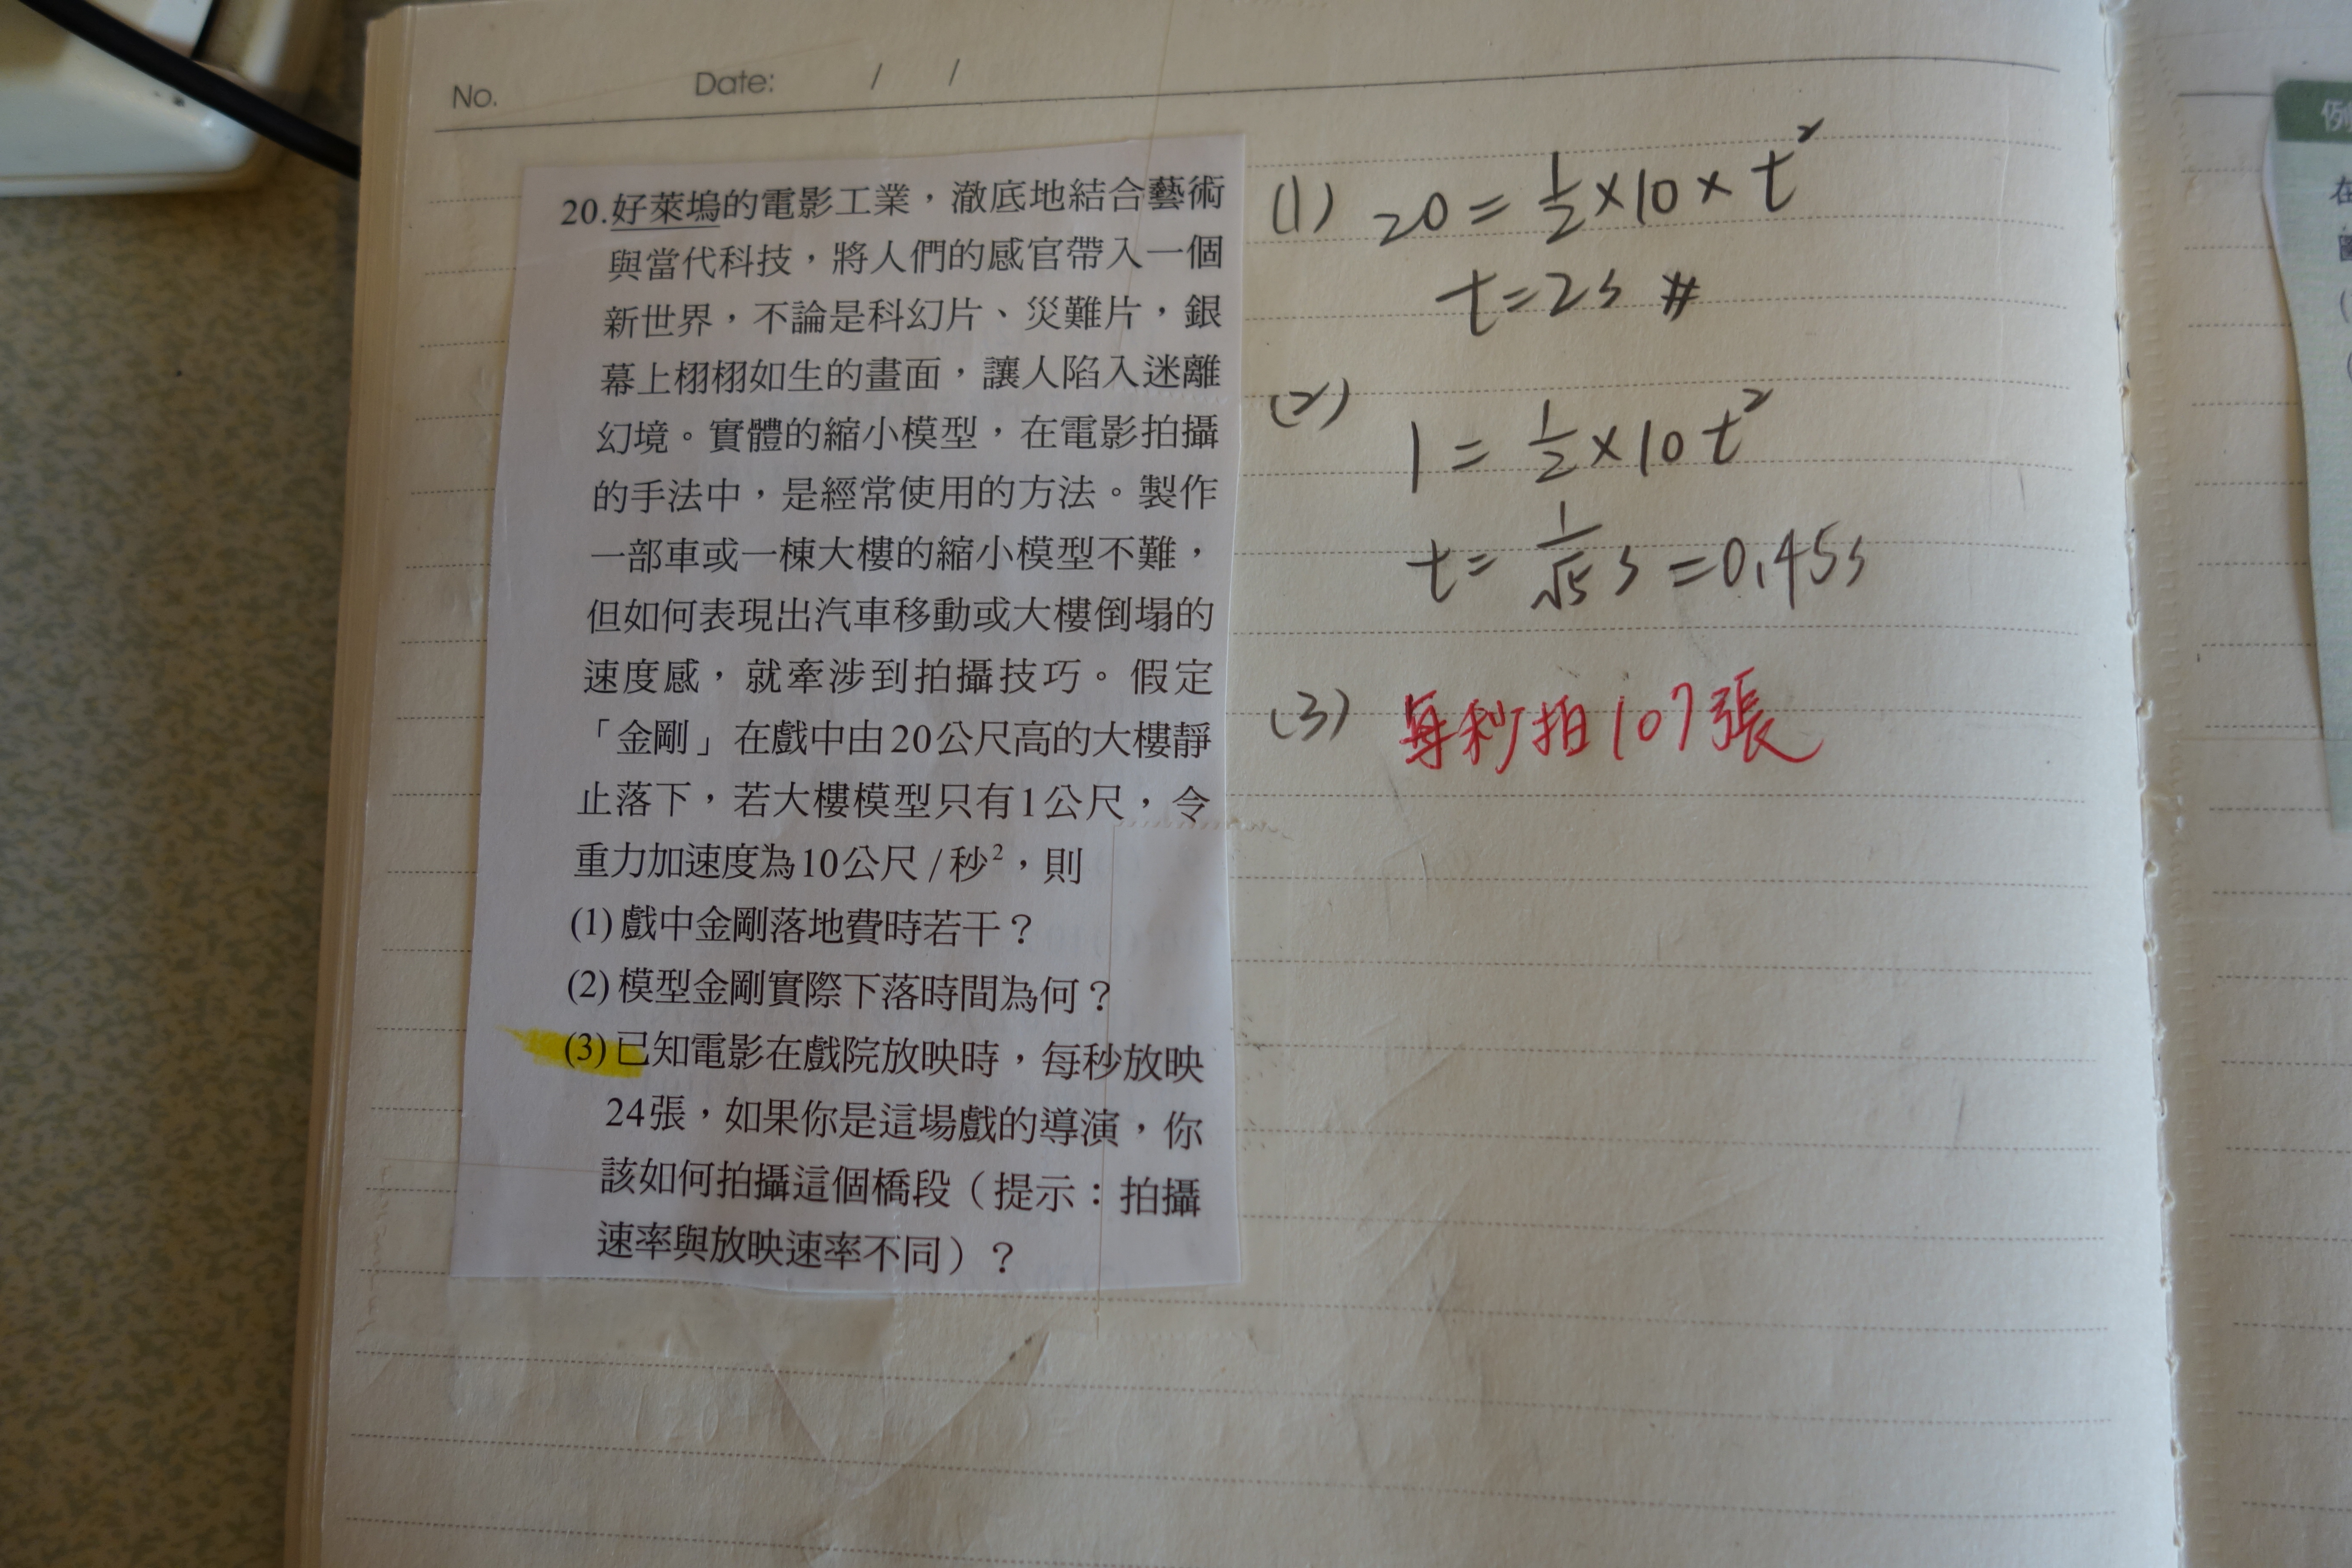 No. Date: / /
20.好萊塢的電影工業，澈底地結合藝術
與當代科技，將人們的感官帶入一個
新世界，不論是科幻片、災難片，銀
幕上栩栩如生的畫面，讓人陷入迷離
幻境。實體的縮小模型，在電影拍攝
的手法中，是經常使用的方法。製作
一部車或一棟大樓的縮小模型不難，
但如何表現出汽車移動或大樓倒塌的
速度感，就牽涉到拍攝技巧。假定
「金剛」在戲中由20公尺高的大樓靜
止落下，若大樓模型只有1公尺，令
重力加速度為10公尺/秒²，則
(1)戲中金剛落地費時若干？
(2)模型金剛實際下落時間為何？
(3)已知電影在戲院放映時，每秒放映
24張，如果你是這場戲的導演，你
該如何拍攝這個橋段（提示：拍攝
速率與放映速率不同）？
(1) 20=½×10×t²
t=2s #
(2) 1=½×10t²
t=1/√5 s=0.45s
(3) 每秒拍107張
例
在